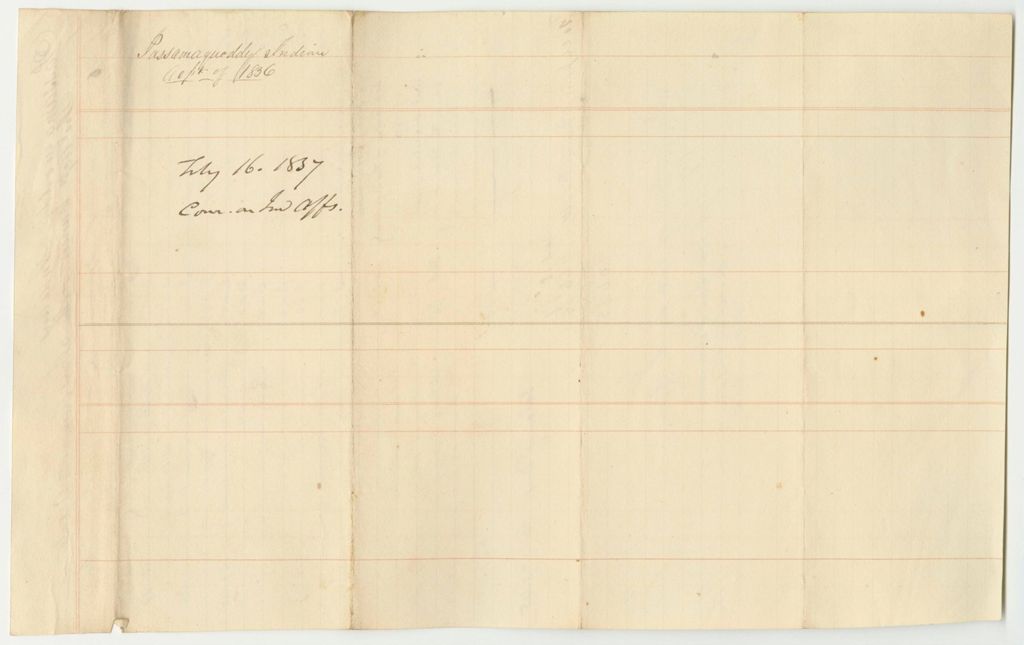 Passamaquoddy Indian
Acpt of 1836
Feby 16. 1837
Com. on Ind Affs.